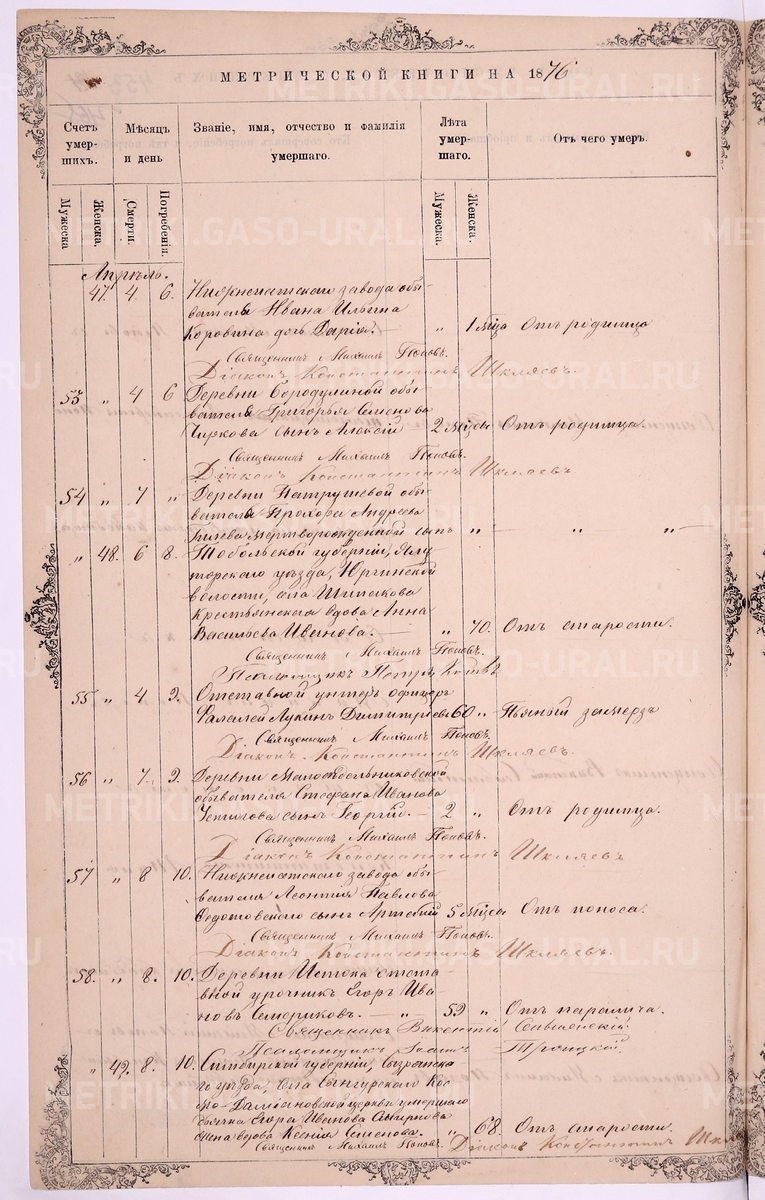 МЕТРИЧЕСКОЙ КНИГИ НА 1876
Счетъ умер-шихъ.
Мѣсяцъ и день
Званіе, имя, отчество и фамилія умершаго.
Лѣта умер-шаго.
Отъ чего умеръ.
Мужеска
Женска.
Смерти.
Погребенія.
Мужеска.
Женска.
Апрѣль.
47. 4. 6. завода обы-
вателя Ивана Ильина
Коровина дочь Дарія. „ 1 мѣсяца Отъ родимца
Священникъ Михаилъ Поповъ.
Діаконъ Константинъ Шкляевъ.
53 „ 4 6 Деревни Бородулиной обы-
вателя Григорья Семенова
Чижкова сынъ Алексій 2 мѣсяцы Отъ родимца.
Священникъ Михаилъ Поповъ.
Діаконъ Константинъ Шкляевъ.
54 „ 7 „ Деревни Патрушевой обы-
вателя Прохора Андреева
мертворожденный сынъ „ „ „
„ 48. 6 8. Тобольской губерніи, Ялу-
торскаго уѣзда, Юргинской
волости, села Шипакова
Крестьянская вдова Анна
Васильева Иванова. „ 70. Отъ старости.
Священникъ Михаилъ Поповъ.
Псаломщикъ Петръ
55 „ 4 9. Отставной унтеръ офицеръ
Лукинъ Димитріевъ 60 „ Пьяный замерзъ
Священникъ Михаилъ Поповъ.
Діаконъ Константинъ Шкляевъ.
56 „ 7. 9. Деревни
обывателя Стефана Иванова
сынъ Георгій. 2 „ Отъ родимца.
Священникъ Михаилъ Поповъ.
Діаконъ Константинъ Шкляевъ
57 „ 8 10. завода обы-
вателя Леонтія Павлова
Федотовскаго сынъ Артемій 5 мѣсяца Отъ поноса.
Священникъ Михаилъ Поповъ.
Діаконъ Константинъ Шкляевъ.
58. „ 8. 10. Деревни Истока отста-
вной урочникъ Егоръ Ива-
новъ Семериковъ. 59 „ Отъ паралича.
Священникъ Викентій
Псаломщикъ Троицкій.
„ 49. 8. 10. Симбирской губерніи, Сызранска-
го уѣзда, села
мо-Даміановской церкви умершаго
Егора Иванова Смирнова
жена вдова Ксенія Семенова. „ 68. Отъ старости.
Священникъ Михаилъ Поповъ. Діаконъ Константинъ
METRIKI.GASO-URAL.RU